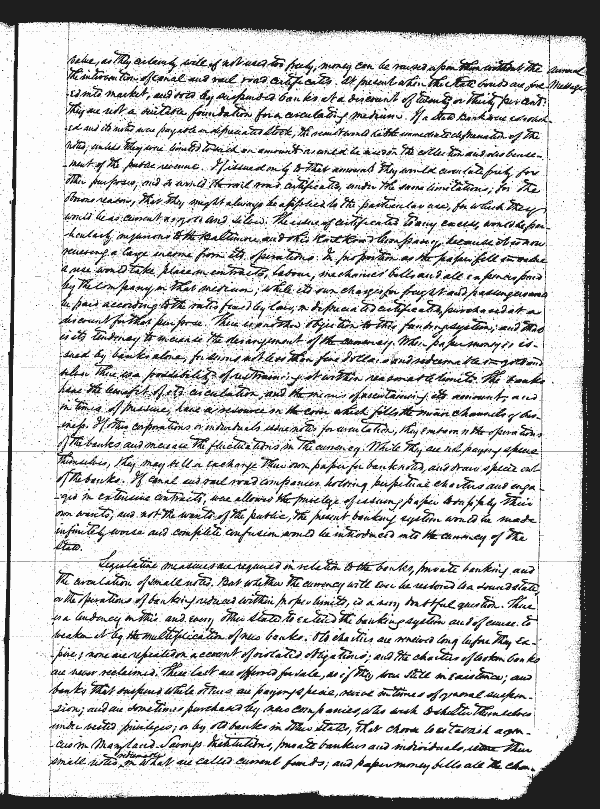 value, as they certainly will if not used too freely, money can be raised upon them without the
Annual
Message
the intervention of canal and rail road certificates. At present when the State bonds are for-
ced into market, and sold by suspended banks at a discount of twenty or thirty per cent.
they are not a suitable foundation for a circulating medium. If a State Bank were establish-
ed and its notes were payable in depreciated stock, the result would be the immediate depreciation of the
notes, unless they were limited to such an amount as could be used in the collection and disburse-
ment of the public revenue. If issued only to that amount they would circulate freely for
other purposes, and so would the rail road certificates, under the same limitations, for the
obvious reason, that they might always be applied to the particular use, for which they
would be as current as gold and silver. The issue of certificates to any excess, would be par-
ticularly injurious to the Baltimore and Ohio Rail Road Company, because it is now
receiving a large income from its operations. In proportion as the paper fell in value
a rise would take place in contracts, labour, mechanics' bills and all expenses paid
by the Company in that medium; while its own charges for freight and passengers would
be paid according to the rates fixed by law, in depreciated certificates, purchased at a
discount for that purpose. There is another objection to this funding system; and that
is its tendency to increase the derangement of the currency. When paper money is is-
sued by banks alone, for sums not less than five dollars and redeemable in gold and
silver there is a possibility of restraining it within reasonable limits. The banks
have the benefit of its circulation, and the means of ascertaining its amount, and
in times of pressure, have a resource in the coin which fills the minor channels of bus-
iness. If other corporations or individuals issue notes for circulation, they embarrass the operations
of the banks and increase the fluctuations in the currency. While they are not paying specie
themselves, they may sell or exchange their own paper for bank notes, and draw specie out
of the banks. If canal and rail road companies holding perpetual charters and enga-
ged in extensive contracts, were allowed the privilege of issuing paper to supply their
own wants, and not the wants of the public, the present banking system would be made
infinitely worse and complete confusion would be introduced into the currency of the
State.
Legislative measures are required in relation to the banks, private banking and
the circulation of small notes. But whether the currency will ever be restored to a sound state,
or the operations of banking reduced within proper limits, is a very doubtful question. There
is a tendency in this and every other State to extend the banking system and of course to
weaken it by the multiplication of new banks. Old charters are renewed long before they ex-
pire; none are repealed on account of violated obligations; and the charters of broken banks
are never reclaimed. These last are offered for sale, as if they were still in existence; and
banks that suspend while others are paying specie, revive in times of general suspen-
sion; and are sometimes purchased by new companies, who wish to shelter themselves
under vested privileges; or by old banks in other states, that choose to establish agen-
cies in Maryland. Savings Institutions, private bankers and individuals, issue their
small notes, redeemable in what are called current funds; and paper money bills all the chan-